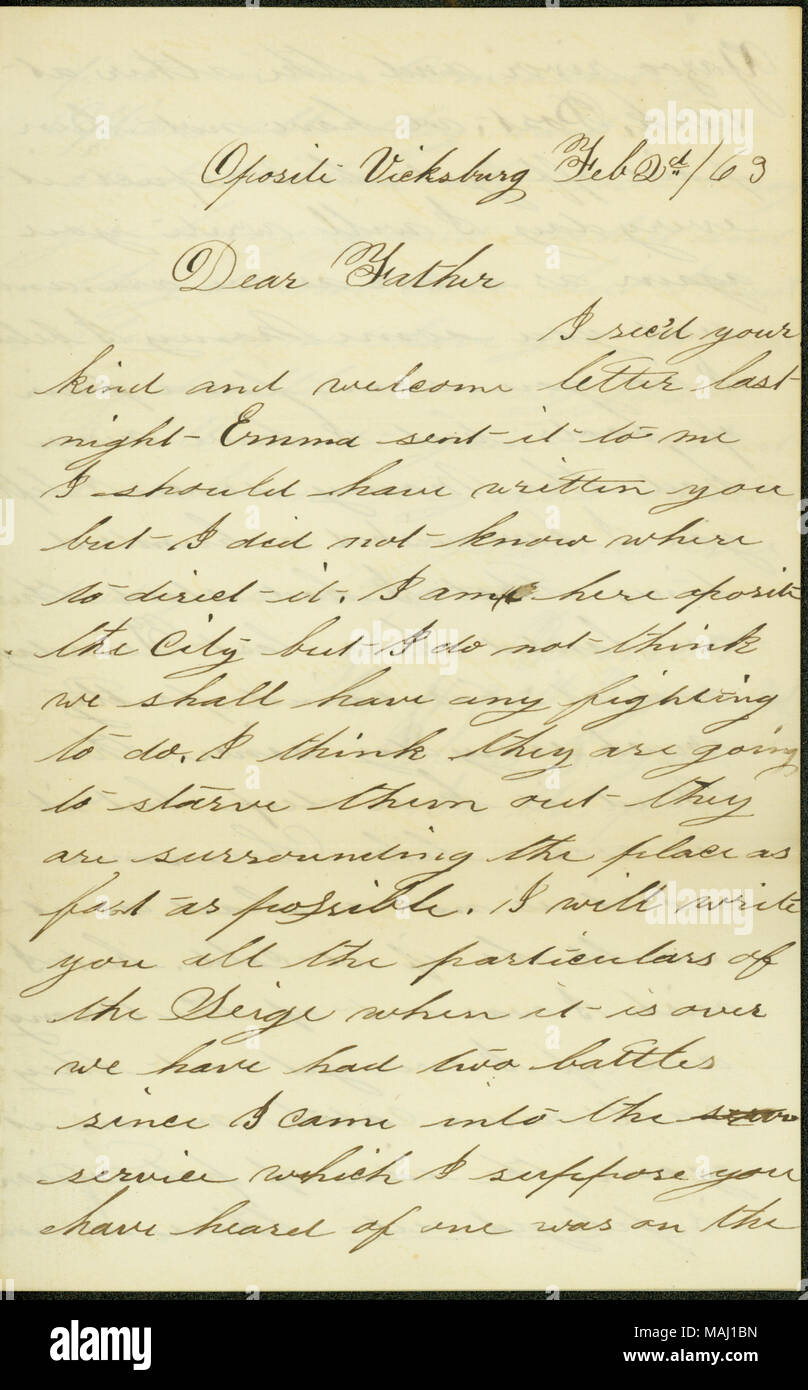 Oposite Vicksburg Feb 2d/63
Dear Father
I rec'd your
kind and welcome letter last
night Emma sent it to me
I should have written you
but I did not know where
to direct it. I am here oposite
the City but I do not think
we shall have any fighting
to do. I think they are going
to starve them out they
are surrounding the place as
fast as possible. I will write
you all the particulars of
the Seige when it is over
we have had two battles
since I came into the
service which I suppose you
have heard of one was on the
alamy
Image ID: MAJ1BN
www.alamy.com